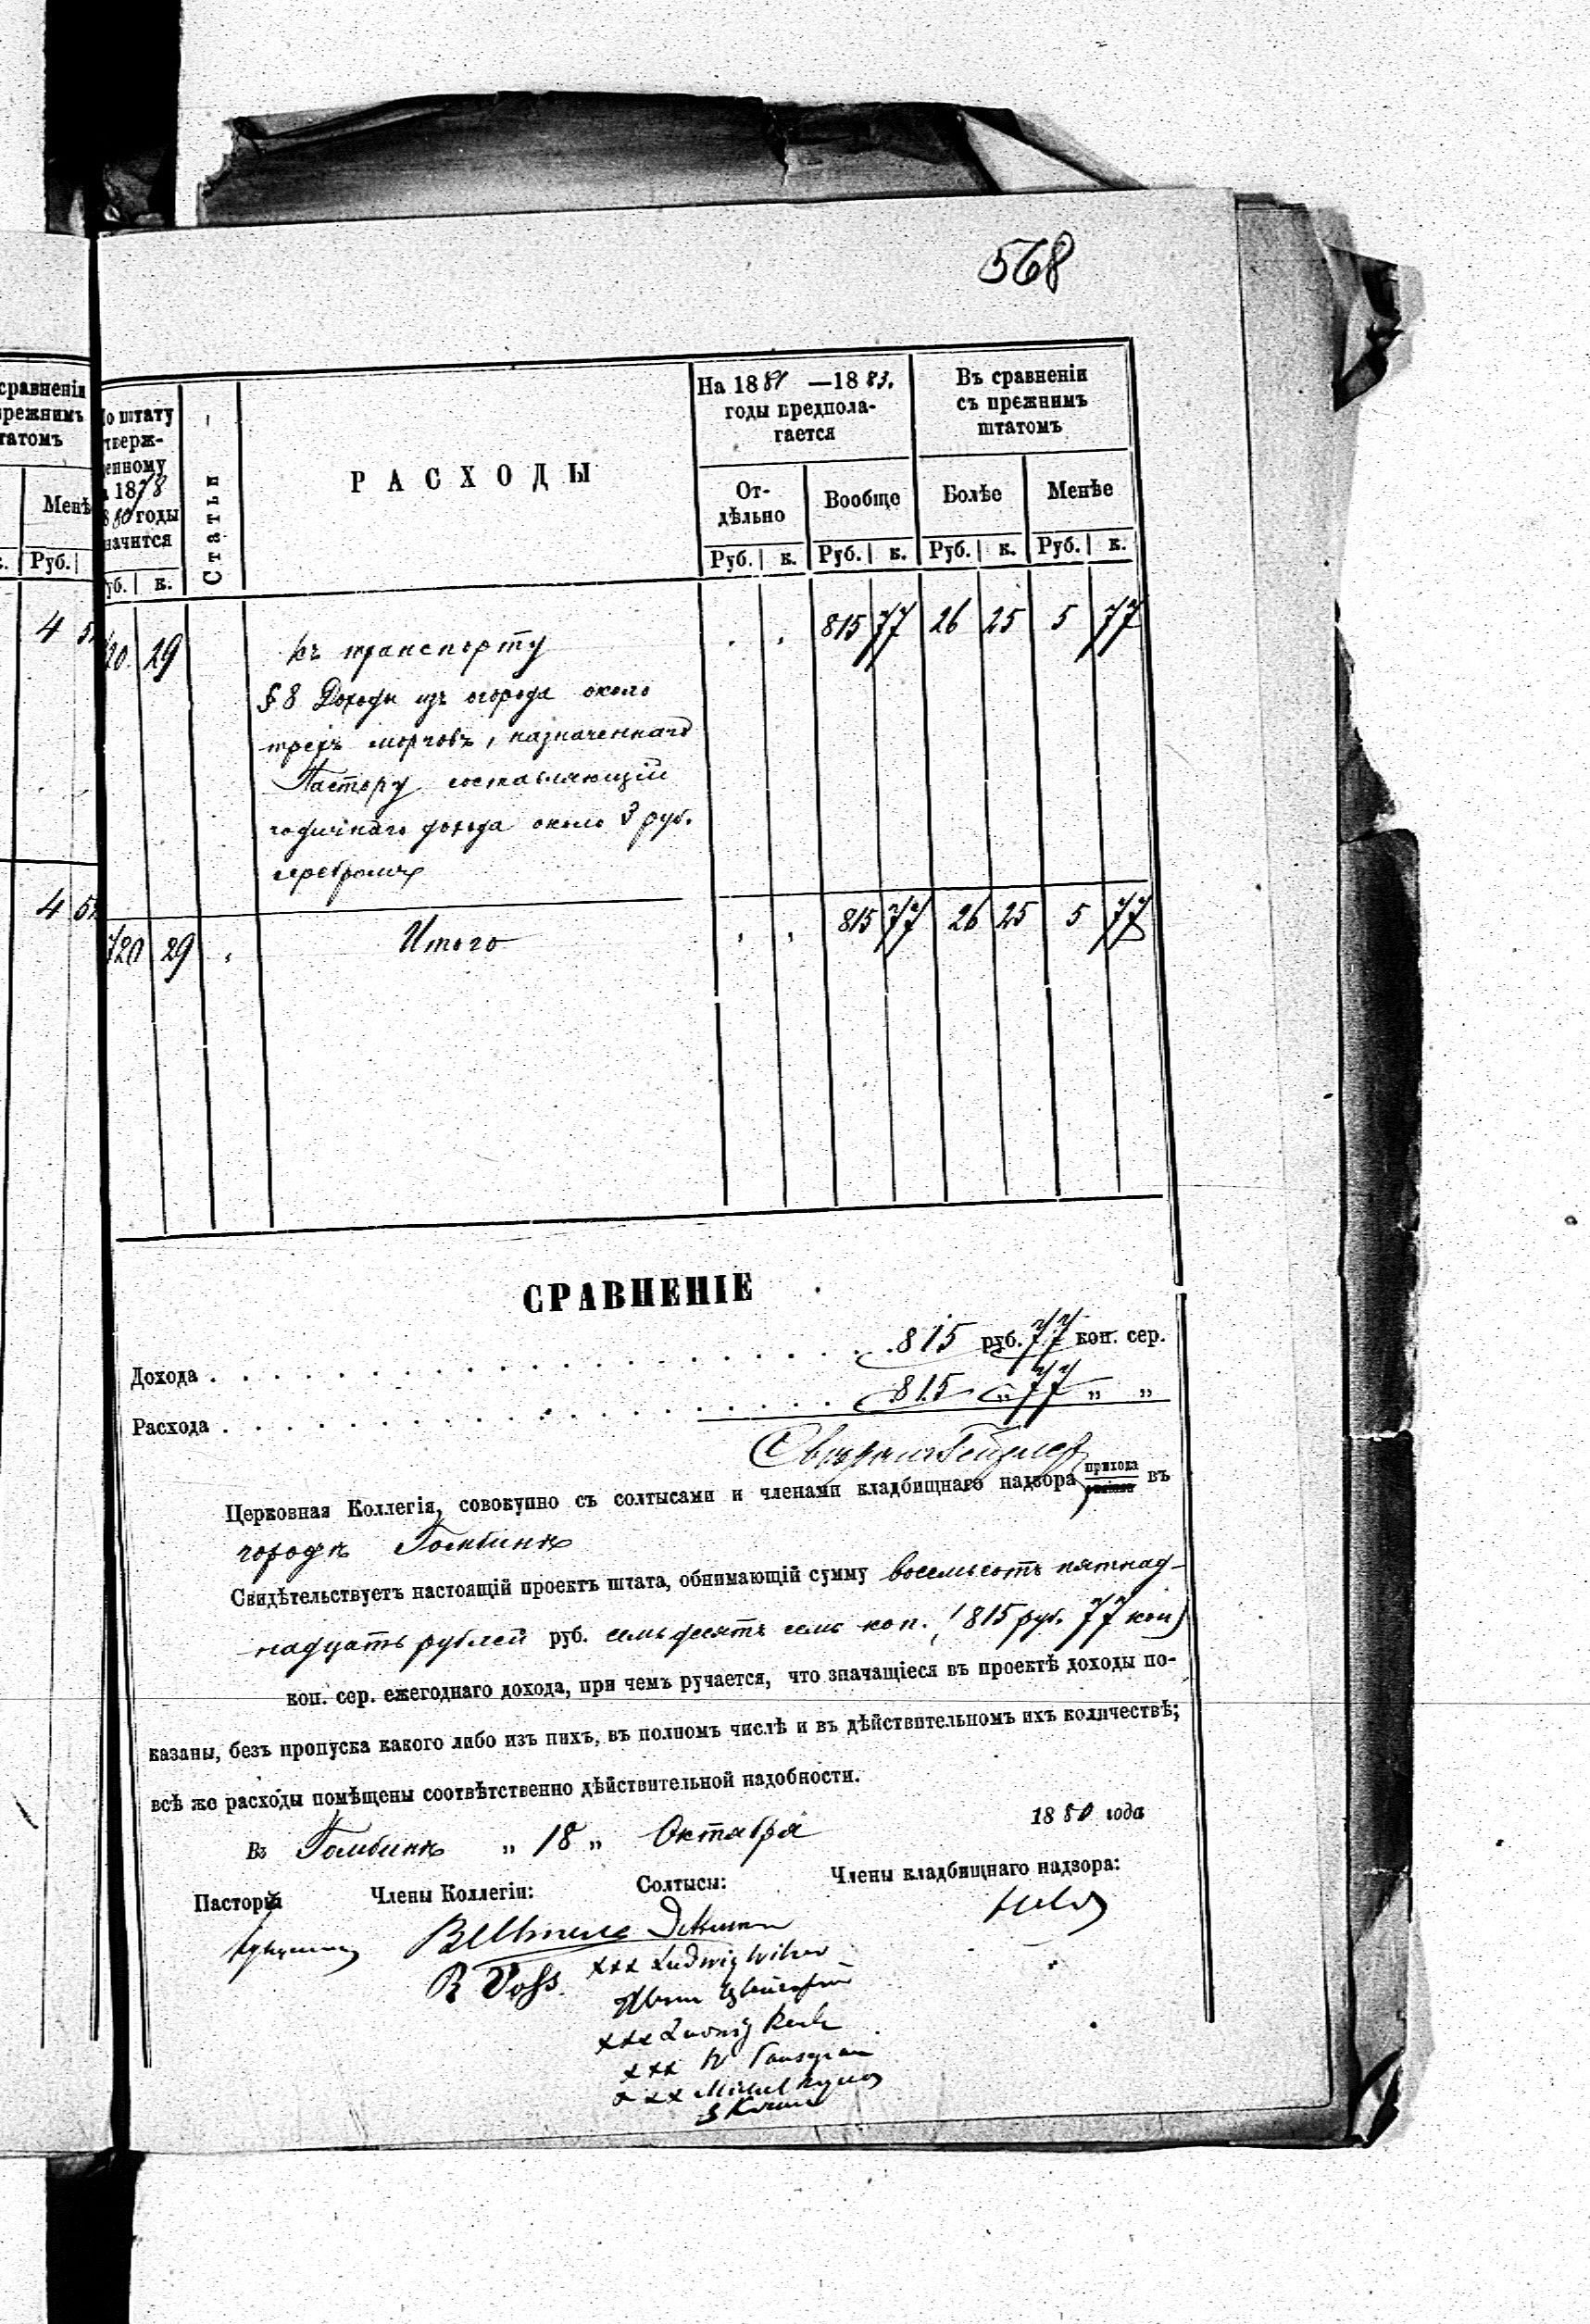 568
сравненіи
прежнимъ
татомъ
Менѣ
Руб.
4
4
По штату
утверж-
денному
1878
80 годы
значится
Руб. к.
Статьи
РАСХОДЫ
На 1881 —1883.
годы предпола-
гается
От-
дѣльно
Вообще
Руб. к. Руб. к.
Въ сравненіи
съ прежнимъ
штатомъ
Болѣе Менѣе
Руб. к. Руб. к.
20. 29 къ транспорту . . 815 77 26 25 5 77
§ 8 Доходы изъ огорода около
трехъ морговъ, назначеннаго
Пастору составляющій
годичнаго дохода около 3 руб.
серебромъ
720 29 . Итого . . 815 77 26 25 5 77
СРАВНЕНІЕ
Дохода . . . 815 руб. 77 коп. сер.
Расхода . . . 815 „ 77 „ „
Церковная Коллегія, совокупно съ солтысами и членами кладбищнаго надзора прихода въ
городѣ Гомбинѣ
Свидѣтельствуетъ настоящій проектъ штата, обнимающій сумму восемьсотъ пятнад-
надцать рублей руб. семьдесятъ семь коп. (815 руб. 77 коп)
коп. сер. ежегоднаго дохода, при чемъ ручается, что значащіеся въ проектѣ доходы по-
казаны, безъ пропуска какого либо изъ нихъ, въ полномъ числѣ и въ дѣйствительномъ ихъ количествѣ;
всѣ же расходы помѣщены соотвѣтственно дѣйствительной надобности.
Въ Гомбинѣ „ 18 „ Октября 1880 года
Пасторъ Члены Коллегіи: Солтысы: Члены кладбищнаго надзора:
R Voss.
xxx Ludwig
xxx Ludwig
xxx W
xxx Michel